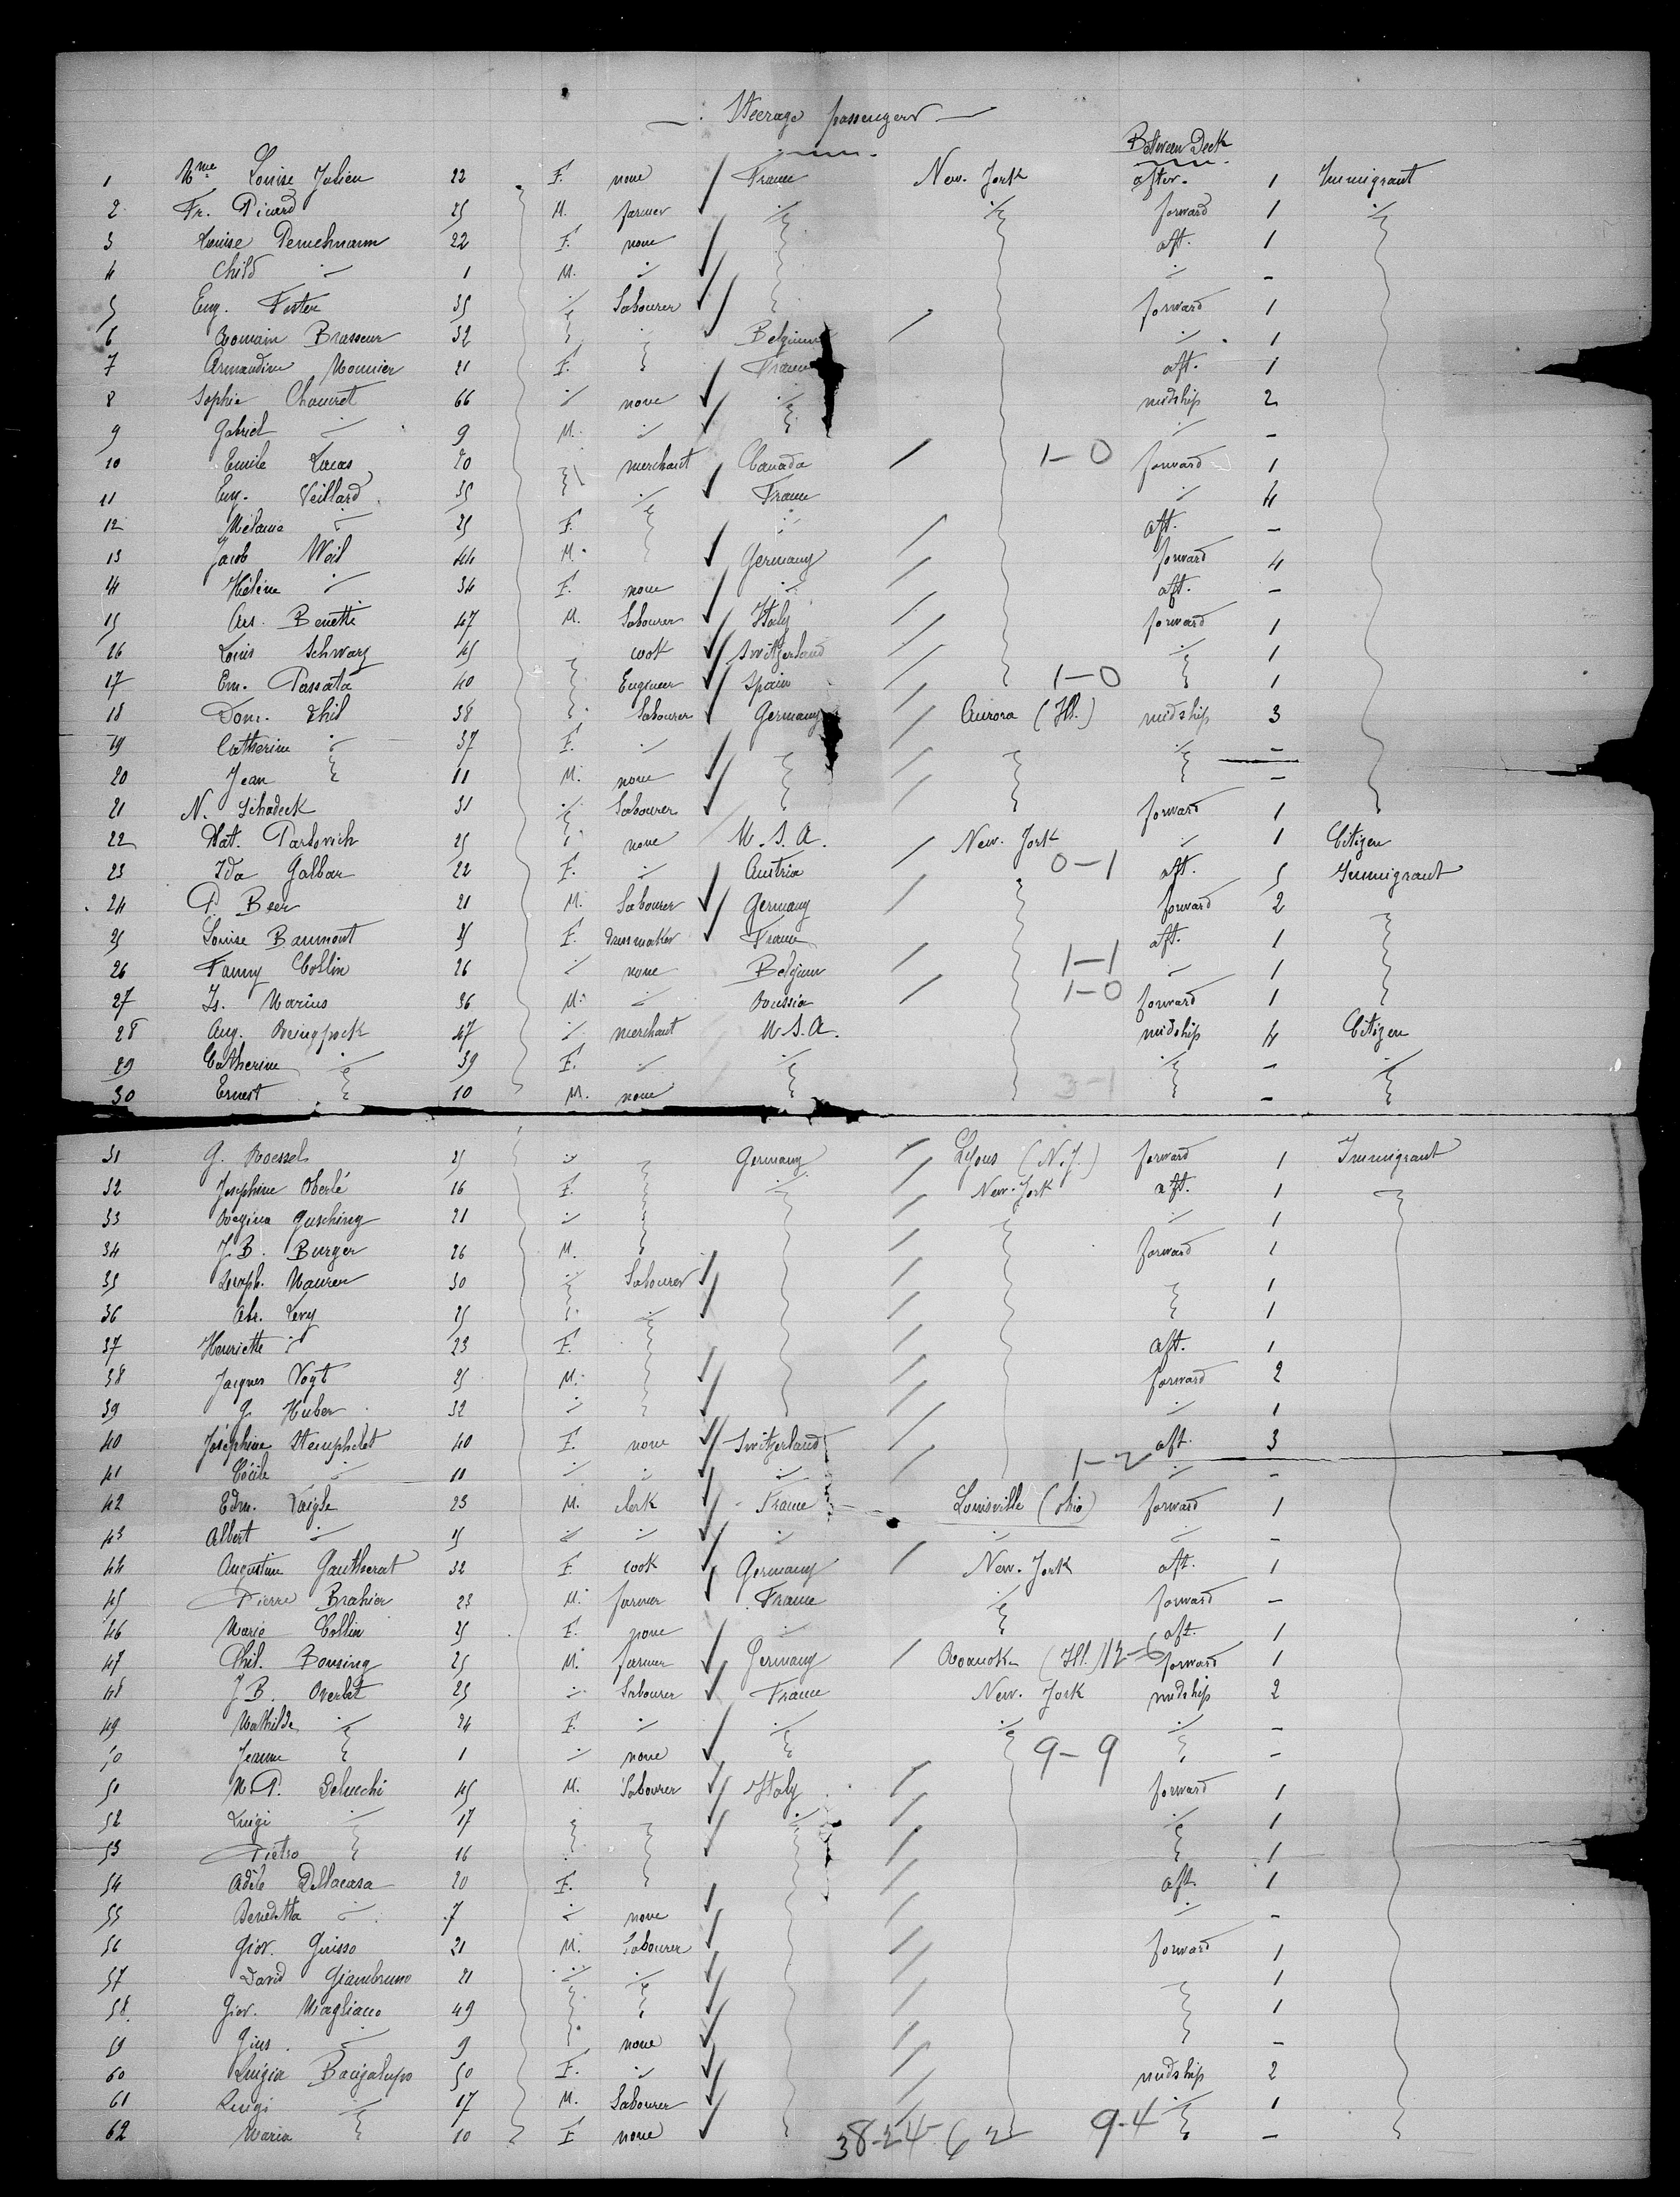 Steerage passengers
Between Deck
1 Mme Louise Julien 22 F. none France New-York after. 1 Immigrant
2 Fr. Picard 25 M. farmer forward 1
3 Louise 22 F. none aft. 1
4 Child 1 M. -
5 Eug. 35 Labourer forward 1
6 Romain Brasseur 32 Belgium 1
7 Armandine Monnier 21 F. France aft. 1
8 Sophie Chauvet 66 none midship 2
9 Gabriel 9 M. -
10 Emile Lucas 20 merchant Canada 1-0 forward 1
11 Eug. Veillard 35 France 4
12 Mélanie 25 F. aft. -
13 Jacob Weil 44 M. Germany forward 4
14 Hélène 34 F. none aft. -
15 Benetti 47 M. Labourer Italy forward 1
16 Louis Schwarz 45 cook Switzerland 1
17 Em. Passata 40 Engineer Spain 1-0 1
18 Dom. Thil 38 Labourer Germany Aurora (Ill.) midship 3
19 Catherine 37 F. -
20 Jean 11 M. none -
21 N. Schadeck 31 Labourer forward 1
22 Mat. Parlovich 25 none U.S.A. New-York 1 Citizen
23 Ida Galbar 22 F. Austria 0-1 aft. 5 Immigrant
24 P. Beer 21 M. Labourer Germany forward 2
25 Louise Baumont 25 F. dressmaker France aft. 1
26 Fanny Collin 26 none Belgium 1-1 1
27 Is. Marius 36 M. Russia 1-0 forward 1
28 Aug. 47 merchant U.S.A. midship 4 Citizen
29 Catherine 39 F. -
30 Ernest 10 M. none 3-1 -
31 G. Roessel 25 Germany Lyons (N.J.) forward 1 Immigrant
32 Josephine Oberlé 16 F. New-York aft. 1
33 Regina Gusching 21 1
34 J.B. Burger 26 M. forward 1
35 Seraph. Maurer 30 Labourer 1
36 Abr. Levy 25 1
37 Henriette 23 F. aft. 1
38 Jacques Vogt 25 M. forward 2
39 G. Huber 32 1
40 Joséphine Stemphelet 40 F. none Switzerland aft. 3
41 Cécile 11 1-2 -
42 Edm. Laigle 23 M. clerk France Louisville (Ohio) forward 1
43 Albert 15 -
44 Augustine Gautherat 32 F. cook Germany New-York aft. 1
45 Pierre Brahier 23 M. farmer France forward -
46 Marie Collin 25 F. none aft. 1
47 Phil. Bousing 25 M. farmer Germany Roanoke (Ill.) 12-6 forward 1
48 J.B. Overlet 25 Labourer France New-York midship 2
49 Mathilde 24 F. -
50 Jeanne 1 none 9-9 -
51 M.P. Delucchi 45 M. Labourer Italy forward 1
52 Luigi 17 1
53 Pietro 16 1
54 Adèle Dellacasa 20 F. aft. 1
55 Benedetta 7 none -
56 Giov. Guisso 21 M. Labourer forward 1
57 David Giambruno 21 1
58. Giov. Magliano 49 1
59 Gius. 9 none -
60 Luigia Bacigalupo 50 F. midship 2
61 Luigi 17 M. Labourer 1
62 Maria 10 F none -
38-24-62 9-4